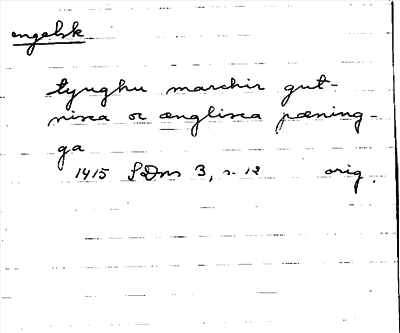 engelsk
tyughu marchir gut-
nisca oc ænglisca pæning-
ga
1415 SDns 3, s. 12 orig.